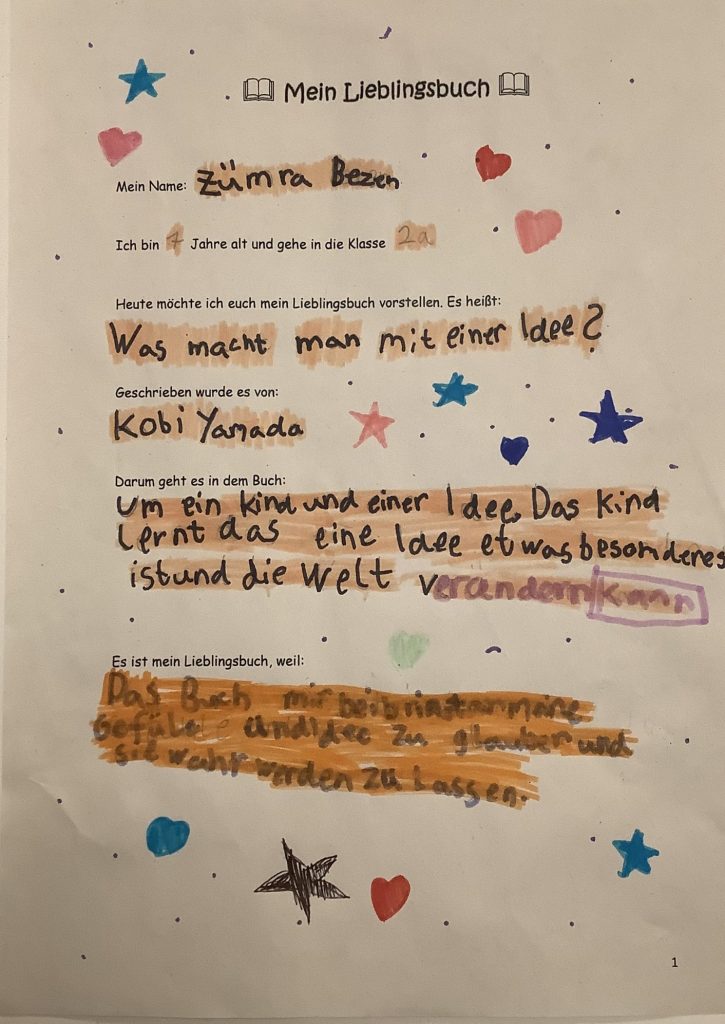 Mein Lieblingsbuch
Mein Name: Zümra Bezen
Ich bin 7 Jahre alt und gehe in die Klasse 2a
Heute möchte ich euch mein Lieblingsbuch vorstellen. Es heißt:
Was macht man mit einer Idee?
Geschrieben wurde es von:
Kobi Yamada
Darum geht es in dem Buch:
Um ein Kind und einer Idee. Das Kind
lernt das eine Idee etwas besonderes
ist und die Welt verandern kann
Es ist mein Lieblingsbuch, weil:
Das Buch mir beibringt an meine
Gefühle und Idee zu glauben und
sie wahr werden zu lassen.
1